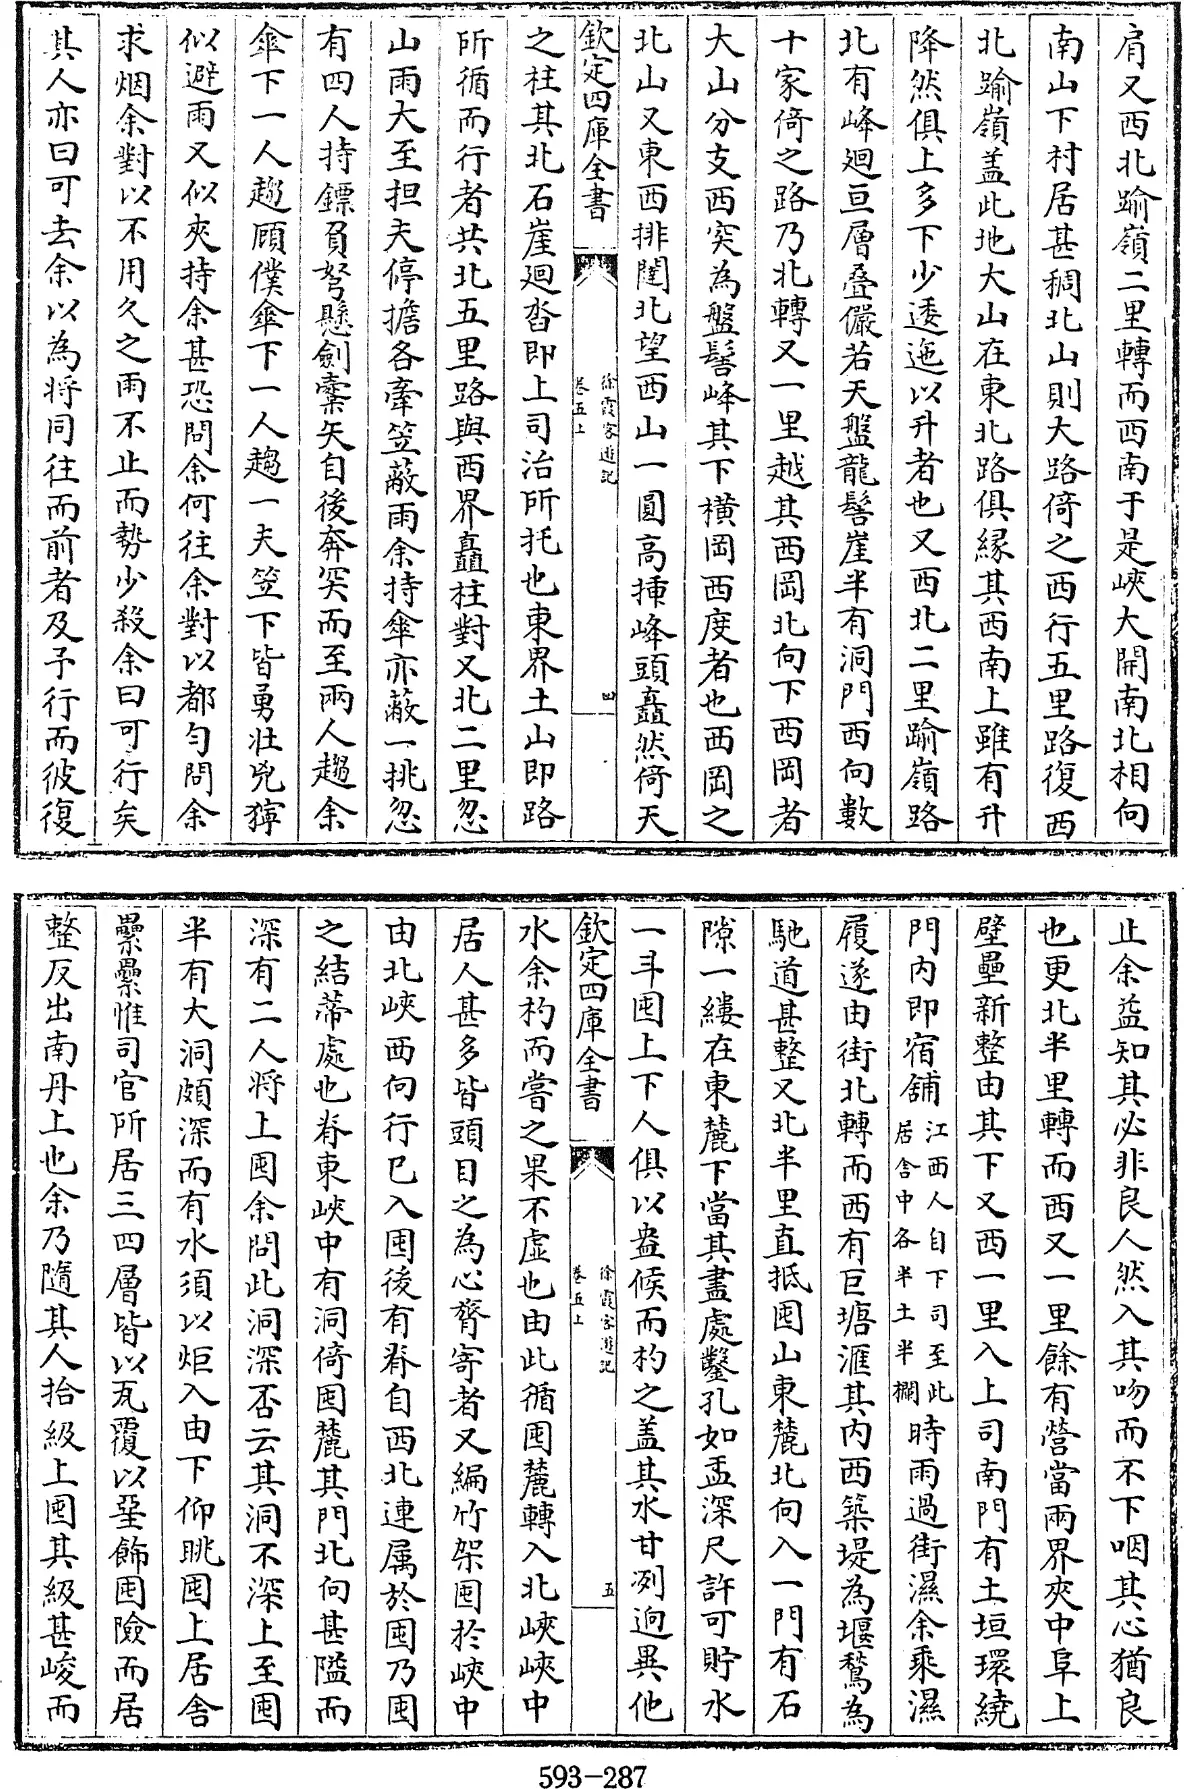 肩又西北踰嶺二里轉而西南于是峽大開南北相向
南山下村居甚稠北山則大路倚之西行五里路復西
北踰嶺盖此地大山在東北路俱緣其西南上雖有升
降然俱上多下少逶迤以升者也又西北二里踰嶺路
北有峰迴亘層疊儼若天盤龍髻崖半有洞門西向數
十家倚之路乃北轉又一里越其西岡北向下西岡者
大山分支西突為盤髻峰其下橫岡西度者也西岡之
北山又東西排闥北望西山一圓高揷峰頭矗然倚天
欽定四庫全書
徐霞客遊記
卷五上
四
之柱其北石崖迴沓即上司治所托也東界土山即路
所循而行者共北五里路與西界矗柱對又北二里忽
山雨大至担夫停擔各牽笠蔽雨余持傘亦蔽一挑忽
有四人持鏢負弩懸劍櫜矢自後奔突而至兩人趨余
傘下一人趨顧僕傘下一人趨一夫笠下皆勇壯兇獰
似避雨又似夾持余甚恐問余何往余對以都勻問余
求烟余對以不用久之雨不止而勢少殺余曰可行矣
其人亦曰可去余以為將同往而前者及予行而彼復
止余益知其必非良人然入其吻而不下咽其心猶良
也更北半里轉而西又一里餘有營當兩界夾中阜上
壁壘新整由其下又西一里入上司南門有土垣環繞
門内即宿舖江西人自下司至此居舍中各半土半欄時雨過街濕余乘濕
履遂由街北轉而西有巨塘滙其内西築堤為堰甃為
馳道甚整又北半里直抵囤山東麓北向入一門有石
隙一縷在東麓下當其盡處鑿孔如盂深尺許可貯水
一斗囤上下人俱以盎候而杓之盖其水甘洌迥異他
欽定四庫全書
徐霞客遊記
卷五上
五
水余杓而嘗之果不虛也由此循囤麓轉入北峽峽中
居人甚多皆頭目之為心膂寄者又編竹架囤於峽中
由北峽西向行已入囤後有脊自西北連属於囤乃囤
之結蒂處也脊東峽中有洞倚囤麓其門北向甚隘而
深有二人將上囤余問此洞深否云其洞不深上至囤
半有大洞頗深而有水須以炬入由下仰眺囤上居舍
纍纍惟司官所居三四層皆以瓦覆以堊飾囤險而居
整反出南丹上也余乃隨其人拾級上囤其級甚峻而
593-287